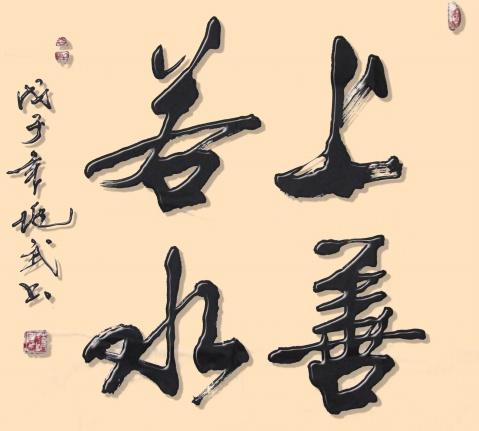 上善
若水
戊子年